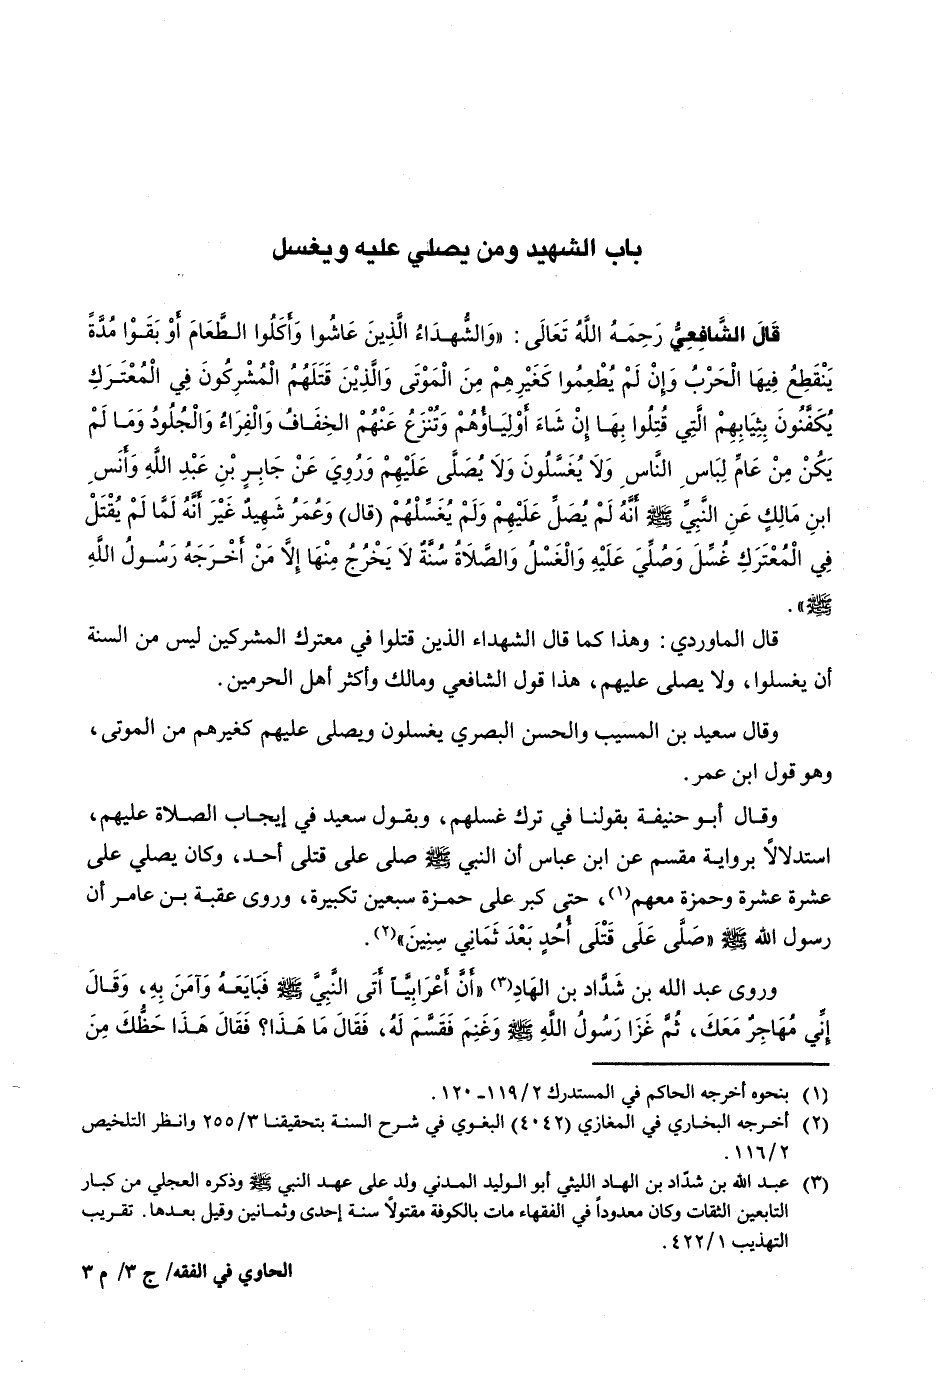 باب الشهيد ومن يصلي عليه ويغسل
قَالَ الشَّافِعِيُّ رَحِمَهُ اللَّهُ تَعَالَى: «وَالشُّهَدَاءُ الَّذِينَ عَاشُوا وَأَكَلُوا الطَّعَامَ أَوْ بَقَوْا مُدَّةً
يَنْقَطِعُ فِيهَا الْحَرْبُ وَإِنْ لَمْ يُطْعِمُوا كَغَيْرِهِمْ مِنَ الْمَوْتَى وَالَّذِيْنَ قَتَلَهُمُ الْمُشْرِكُونَ فِي الْمُعْتَرَكِ
يُكَفَّنُونَ بِثِيَابِهِمْ الَّتِي قُتِلُوا بِهَا إِنْ شَاءَ أَوْلِيَاؤُهُمْ وَتُنْزَعُ عَنْهُمْ الخِفَافُ وَالْفِرَاءُ وَالْجُلُودُ وَمَا لَمْ
يَكُنْ مِنْ عَامِّ لِبَاسِ النَّاسِ وَلَا يُغَسَّلُونَ وَلَا يُصَلَّى عَلَيْهِمْ وَرُوِيَ عَنْ جَابِرِ بْنِ عَبْدِ اللَّهِ وَأَنَسِ
ابنِ مَالِكٍ عَنِ النَّبِيِّ ﷺ أَنَّهُ لَمْ يُصَلِّ عَلَيْهِمْ وَلَمْ يُغَسِّلْهُمْ (قال) وَعُمَرُ شَهِيدٌ غَيْرَ أَنَّهُ لَمَّا لَمْ يُقْتَلْ
فِي الْمُعْتَرَكِ غُسِّلَ وَصُلِّيَ عَلَيْهِ وَالْغَسْلُ وَالصَّلَاةُ سُنَّةٌ لَا يَخْرُجُ مِنْهَا إِلَّا مَنْ أَخْرَجَهُ رَسُولُ اللَّهِ
ﷺ».
قال الماوردي: وهذا كما قال الشهداء الذين قتلوا في معترك المشركين ليس من السنة
أن يغسلوا، ولا يصلى عليهم، هذا قول الشافعي ومالك وأكثر أهل الحرمين.
وقال سعيد بن المسيب والحسن البصري يغسلون ويصلى عليهم كغيرهم من الموتى،
وهو قول ابن عمر.
وقال أبو حنيفة بقولنا في ترك غسلهم، وبقول سعيد في إيجاب الصلاة عليهم،
استدلالاً برواية مقسم عن ابن عباس أن النبي ﷺ صلى على قتلى أحد، وكان يصلي على
عشرة عشرة وحمزة معهم(١)، حتى كبر على حمزة سبعين تكبيرة، وروى عقبة بن عامر أن
رسول الله ﷺ «صَلَّى عَلَى قَتْلَى أُحُدٍ بَعْدَ ثَمَانِي سِنِينَ»(٢).
وروى عبد الله بن شدَّاد بن الهَادِ(٣) «أَنَّ أَعْرَابِيَّاً أَتَى النَّبِيَّ ﷺ فَبَايَعَهُ وَآمَنَ بِهِ، وَقَالَ
إِنِّي مُهَاجِرٌ مَعَكَ، ثُمَّ غَزَا رَسُولُ اللَّهِ ﷺ وَغَنِمَ فَقَسَّمَ لَهُ، فَقَالَ مَا هَذَا؟ فَقَالَ هَذَا حَظُّكَ مِنَ
(١) بنحوه أخرجه الحاكم في المستدرك ١١٩/٢ـ ١٢٠.
(٢) أخرجه البخاري في المغازي (٤٠٤٢) البغوي في شرح السنة بتحقيقنا ٢٥٥/٣ وانظر التلخيص
١١٦/٢.
(٣) عبد الله بن شدّاد بن الهاد الليثي أبو الوليد المدني ولد على عهد النبي ﷺ وذكره العجلي من كبار
التابعين الثقات وكان معدوداً في الفقهاء مات بالكوفة مقتولاً سنة إحدى وثمانين وقيل بعدها. تقريب
التهذيب ٤٢٢/١.
الحاوي في الفقه/ ج ٣/ م ٣